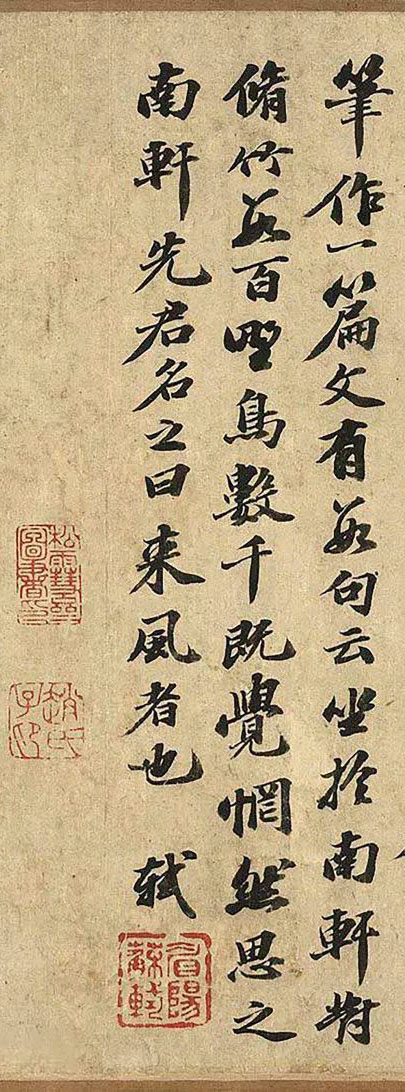 筆作一篇文有數句云坐於南軒對
脩竹數百野鳥數千既覺惘然思之
南軒先君名之曰来風者也 軾
眉陽蘇軾
松雪齋圖書印
趙氏子印